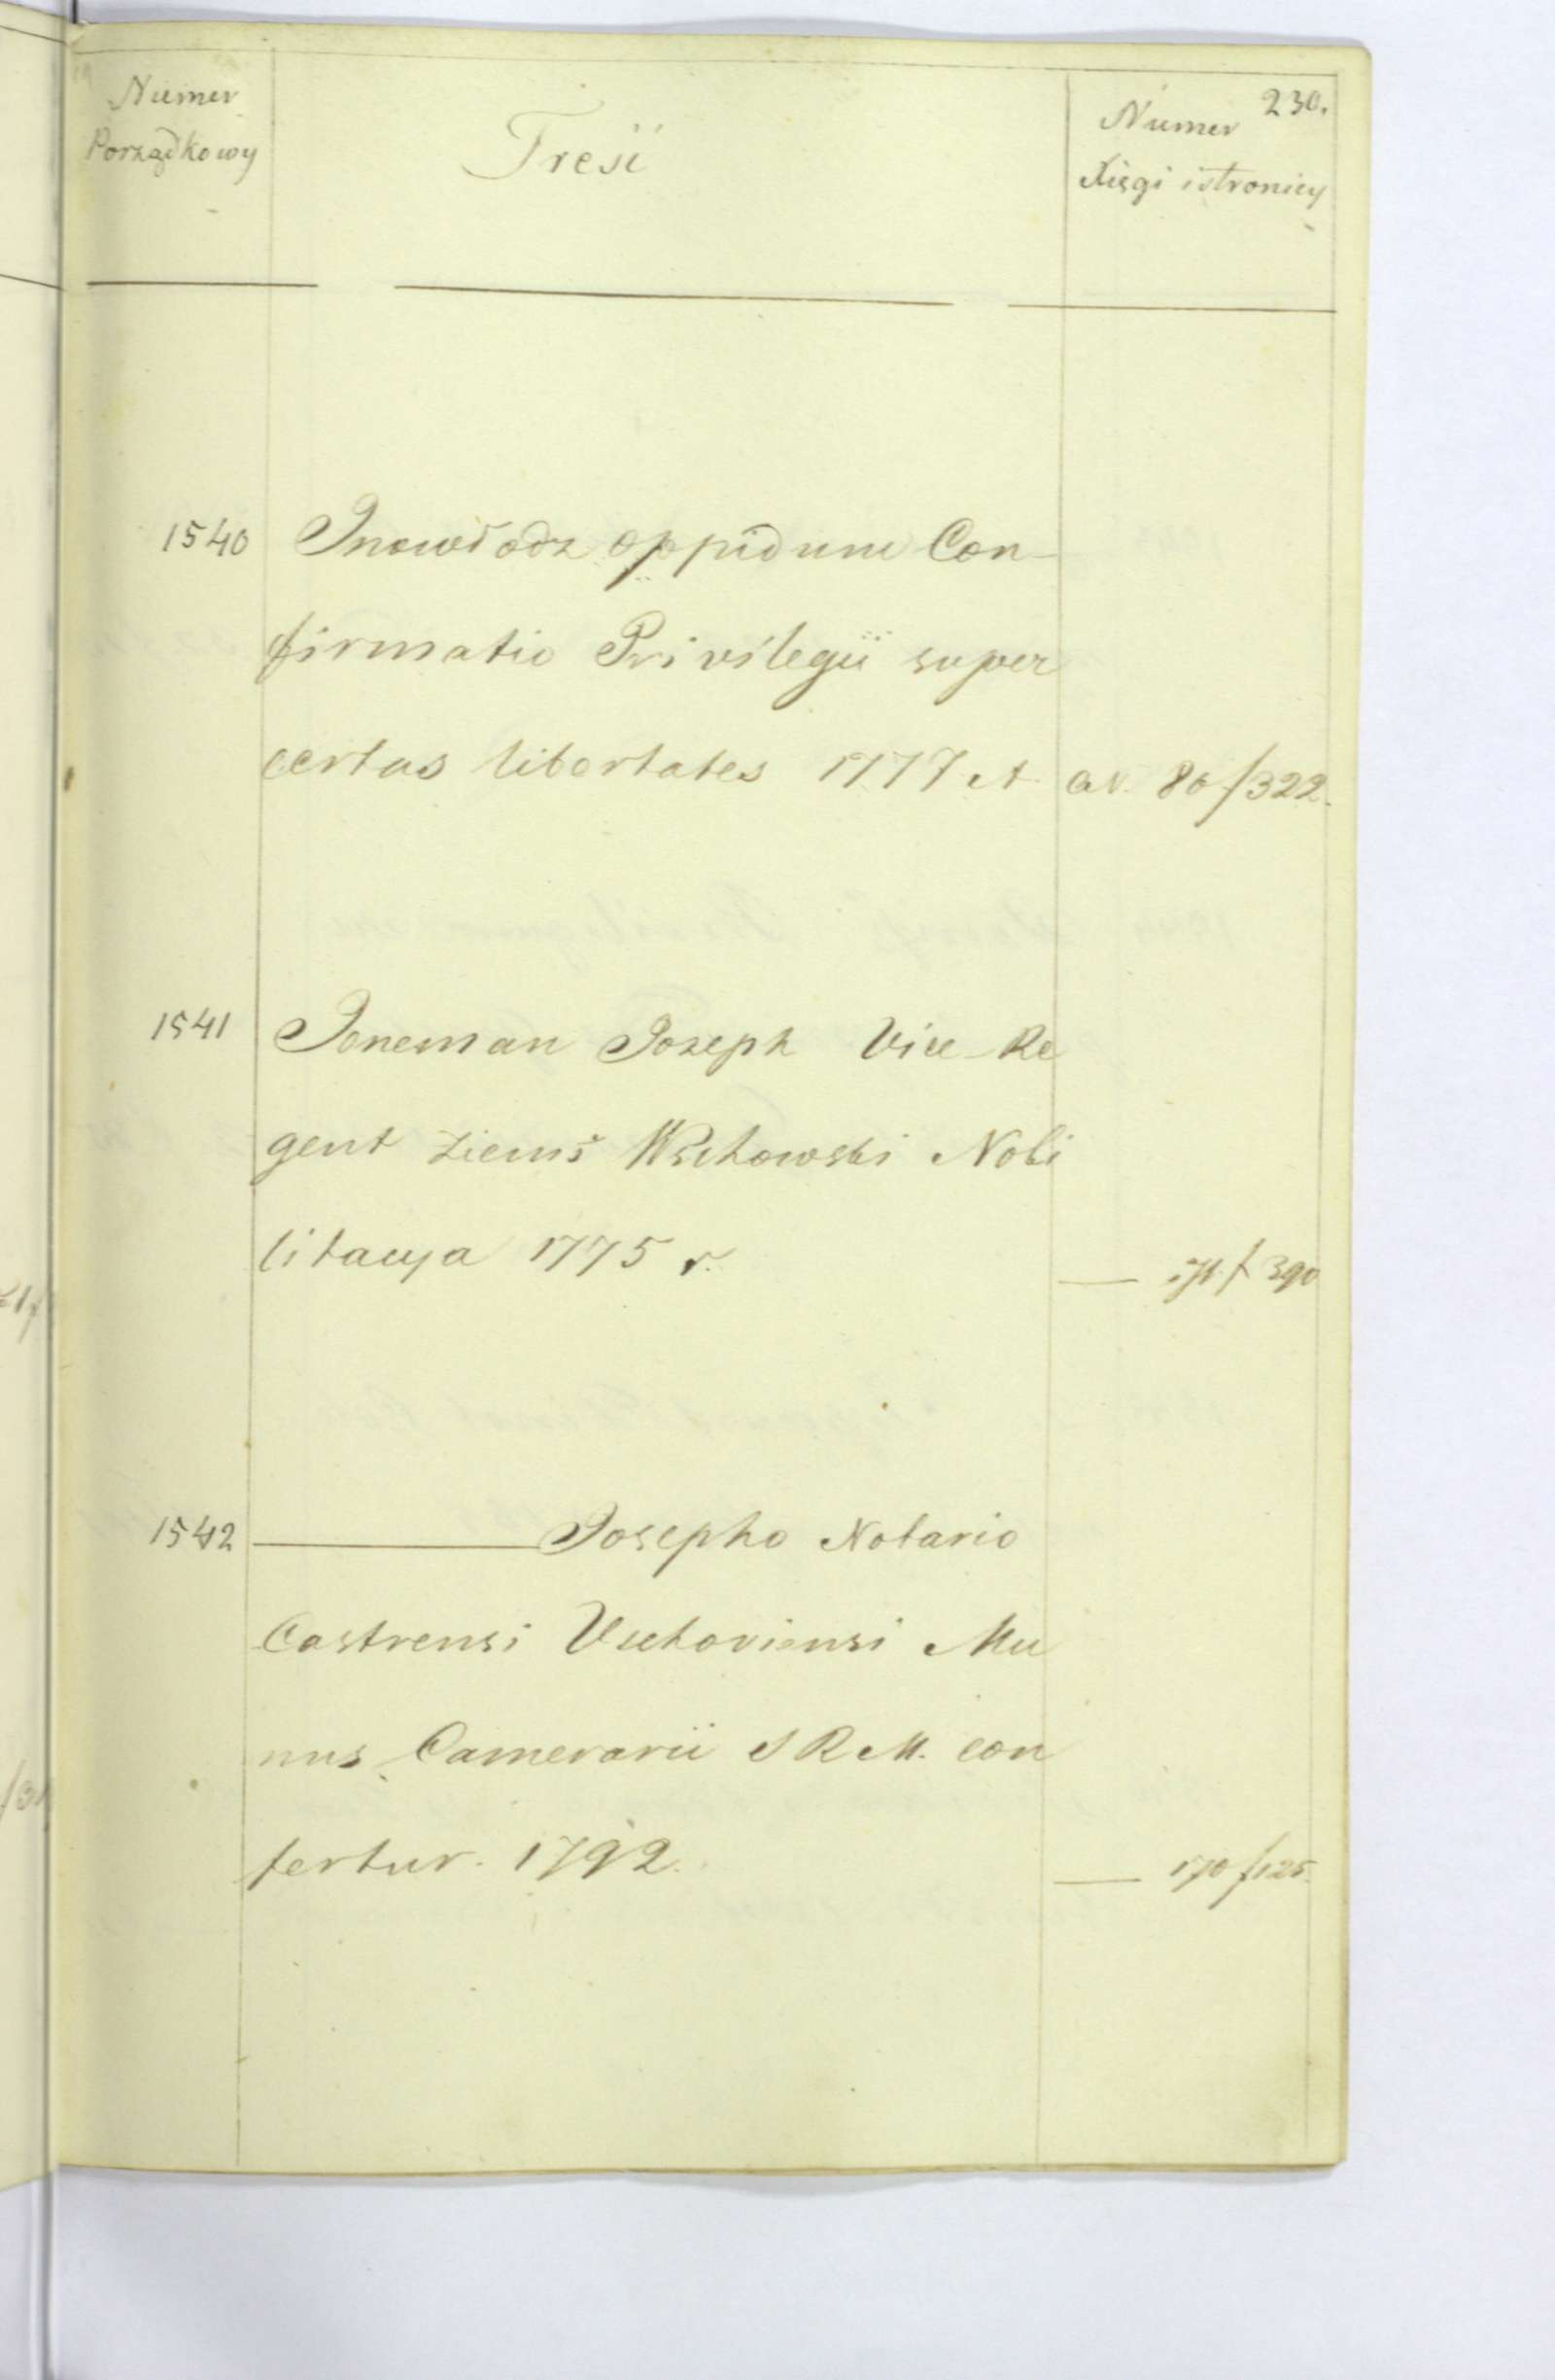 230.
Numer
Porządkowy
Treść
Numer
Xięgi i stronicy
1540 Inowłodz oppidum Con-
firmatio Privilegii super
certas libertates 1777 et av. 86 f 322.
1541 Joneman Jozeph Vice-Re
gent ziems Wschowski Nobi
litacya 1775 r. — f 390
1542 — Josepho Notario
Castrensi Vschoviensi Mu
nus Camerarii S R M. con
fertur. 1792. — 170 f 125.